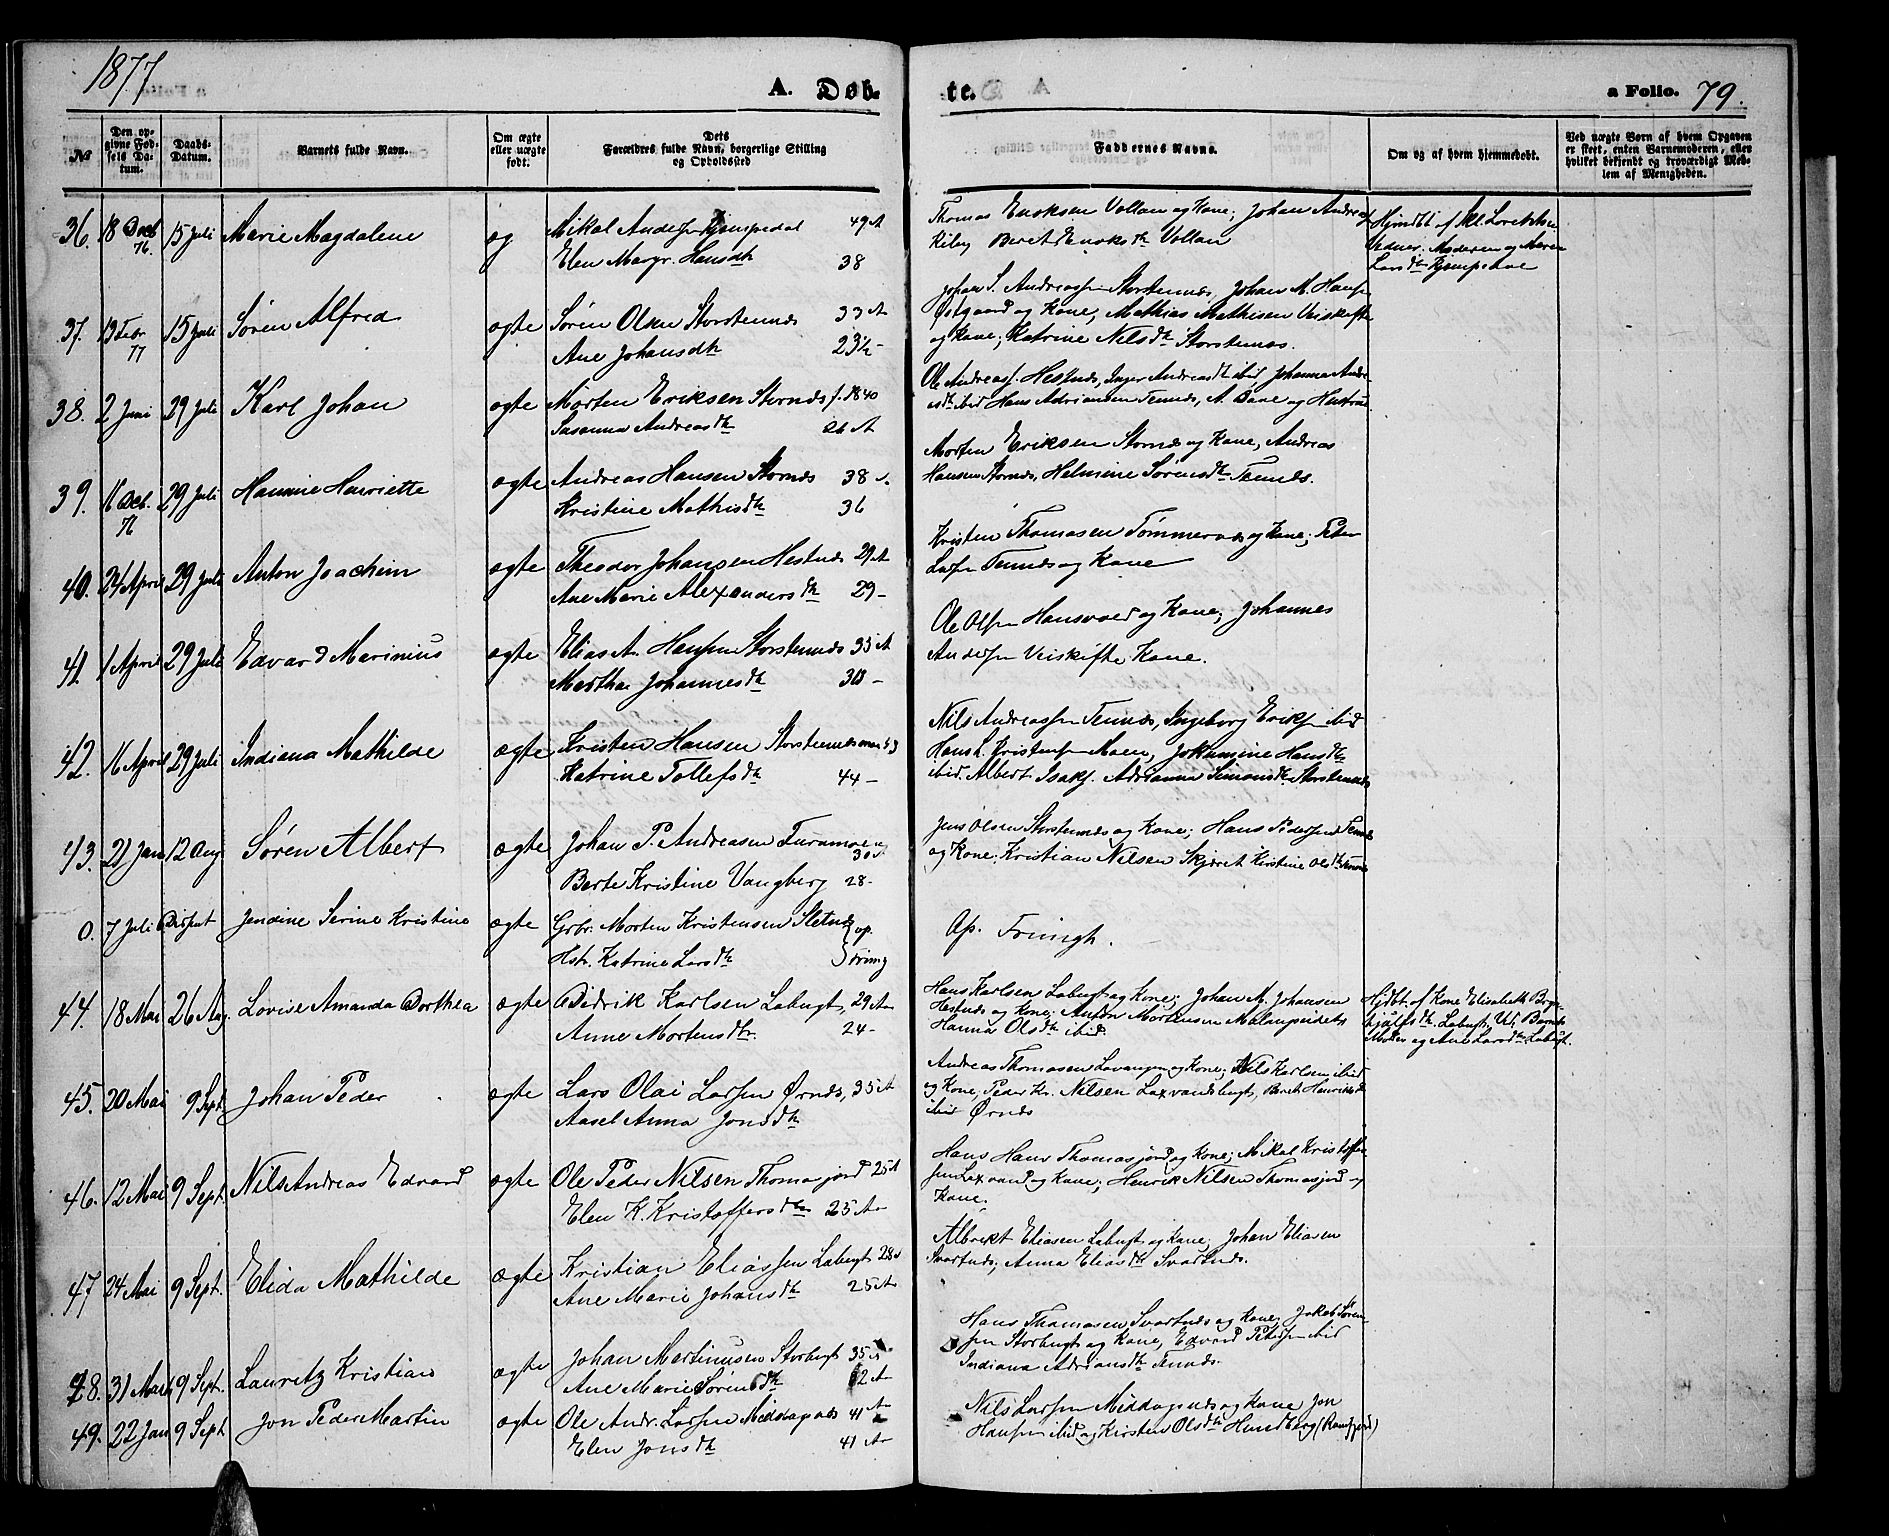 1877
A. Døb-
te.
a Folio. 79.
№
Den op-
givne Fød-
sels Da-
tum.
Daabs-
Datum.
Barnets fulde Navn.
Om ægte
eller uægte
født.
Dets
Forældres fulde Navn, borgerlige Stilling
og Opholdssted
Faddernes Navne.
Om og af hvem hjemmedøbt.
Ved uægte Børn af hvem Opgaven
er skeet, enten Barnemoderen, eller
hvilket bekjendt og troværdigt Med-
lem af Menigheden.
36. 18 Decb 76. 15 Juli Marie Magdalene æg Mikal Anders. 49 A
Elen Margr. Hansdtr 38
Thomas Eriksen Vollan og Kone; Johan Andreas
Kileng Beret Eriksdtr Vollan
37. 13 Febr 77 15 Juli Søren Alfred ægte Søren Olsen Storstennæs 33 A
Ane Johansdtr 23½ -
Johan S. Andreassen Storstennæs, Johan M. Hansen
Østgaard og Kone, Mathias Mathisen Veiskifte
og Kone; Katrine Nilsdtr Storstennæs.
38. 2 Juni 29 Juli Karl Johan ægte Morten Eriksen Stornæs f. 1840
Susanna Andreasdtr 26 A
Ole Andreass. Hestnæs, Inger Andreasdtr ibid, Johanna Andre-
asdtr ibid Hans Adriansen Tennæs, A. Bane og Hustru
39. 16 Decb. 76 29 Juli Hannine Henriette ægte Andreas Hansen Stornæs 38 A
Kristine Mathisdtr 36
Morten Eriksen Stornæs og Kone, Andreas
Hansen Stornæs, Helmine Sørensdtr Tennæs.
40. 24 April 29 Juli Anton Joachim ægte Theodor Johansen Hestnæs 29 A
Ane Marie Alexandersdtr 29 -
Kristen Thomasen Tømmernæs og Kone; Peter
Larsen Tennæs og Kone
41. 1 April 29 Juli Edvard Marinius ægte Elias A. Hansen Storstennæs 35 A
Martha Johannesdtr 30 -
Ole Olsen Hansvold og Kone; Johannes
Andersen Veiskifte Kone.
42. 16 April 29 Juli Indiana Mathilde ægte Kristen Hansen Storstennæs
Katrine Tollefsdtr 44 -
Nils Andreassen Tennæs, Ingeborg Eriksen ibid
Hans L. Kristensen Moen, Jokumine Hansdtr
ibid. Albert Isaks. Adrianna Simonsdtr Storstennæs
43. 21 Jan 12 Aug Søren Albert ægte Johan P. Andreasen Furumoe 30 A
Berte Kristine Vangberg 28 -
Jens Olsen Storstennæs og Kone; Hans Pedersen Tennæs
og Kone; Kristian Nilsen Skjæret Kirstine Olsdtr Tennæs
0. 7 Juli Disput Jendine Serine Kristine ægte Grbr. Morten Kristensen Sletnæs } op.
Hstr. Katrine Larsdtr } Tromsø
Op. Tromsø.
44. 18 Mai 26 Aug. Lovise Amanda Dorthea ægte Didrik Karlsen Labugt, 29 Aar
Anne Mortensdtr. 24 -
Hans Karlsen Labugt og Kone; Johan A. Johansen
Hestnæs og Kone; Anton Mortensen Malangseidet
Hanna Olsdtr ibid
Hjdbt. af Kone Elisabeth Bryn-
hjulfsdtr. Labugt, Vid. Barnets
Moder og Ane Larsdtr Labugt.
45. 20 Mai 9 Sept Johan Peder ægte Lars Olai Larsen Ørnæs, 35 A
Aasel Anna Jonsdtr
Andreas Thomasen Lavangen og Kone; Nils Karlsen ibid
og Kone, Peder Kr. Nilsen Laxvandsbugt, Beret Henriksdtr
ibid Ørnæs
46. 12 Mai 9 Sept. Nils Andreas Edvard ægte Ole Peder Nilsen Thomasjord 25 A
Elen K. Kristoffersdtr 25 Aar
Hans Hans Thomasjord og Kone; Mikal Kristoffer-
sen Laxvand og Kone; Henrik Nilsen Thomasjord og
Kone.
47 24 Mai 9 Sept. Elida Mathilde ægte Kristian Eliassen Labugt 28 A
Ane Marie Johansdtr 25 Aar
Albrikt Eliasen Labugt og Kone; Johan Eliasen
Svartnæs; Anna Eliasdtr Svartnæs.
48. 31 Mai 9 Sept. Lauretz Kristian ægte Johan Martinusen Storbugt 35 A
Ane Marie Sørensdtr
Hans Thomasen Svartnæs og Kone; Jakob Søren-
sen Storbugt og Kone, Edvard Petersen ibid
Indiana Adriansdtr Tennæs.
49. 22 Jan 9 Sept Jon Peder Martin ægte Ole Andr. Larsen Middagsnæs 41 Aar
Elen Jonsdtr 41 Aar
Nils Larsen Middagsnæs og Kone Jon
Hansen ibid og Kirsten Olsdtr Hundberg (Ramfjord)